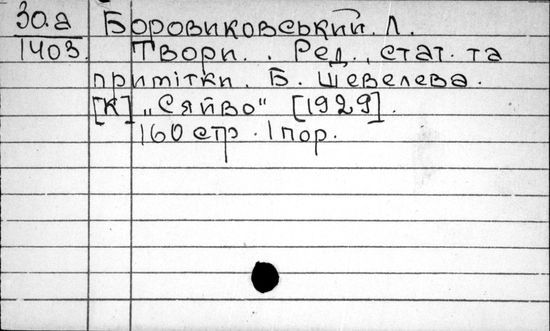 30.а Боровиковський. Л.
1403. Твори. . Ред., стат. та
примітки. Б. Шевелева.
[К] „Сяйво" [1929].
160 стр. 1 пор.